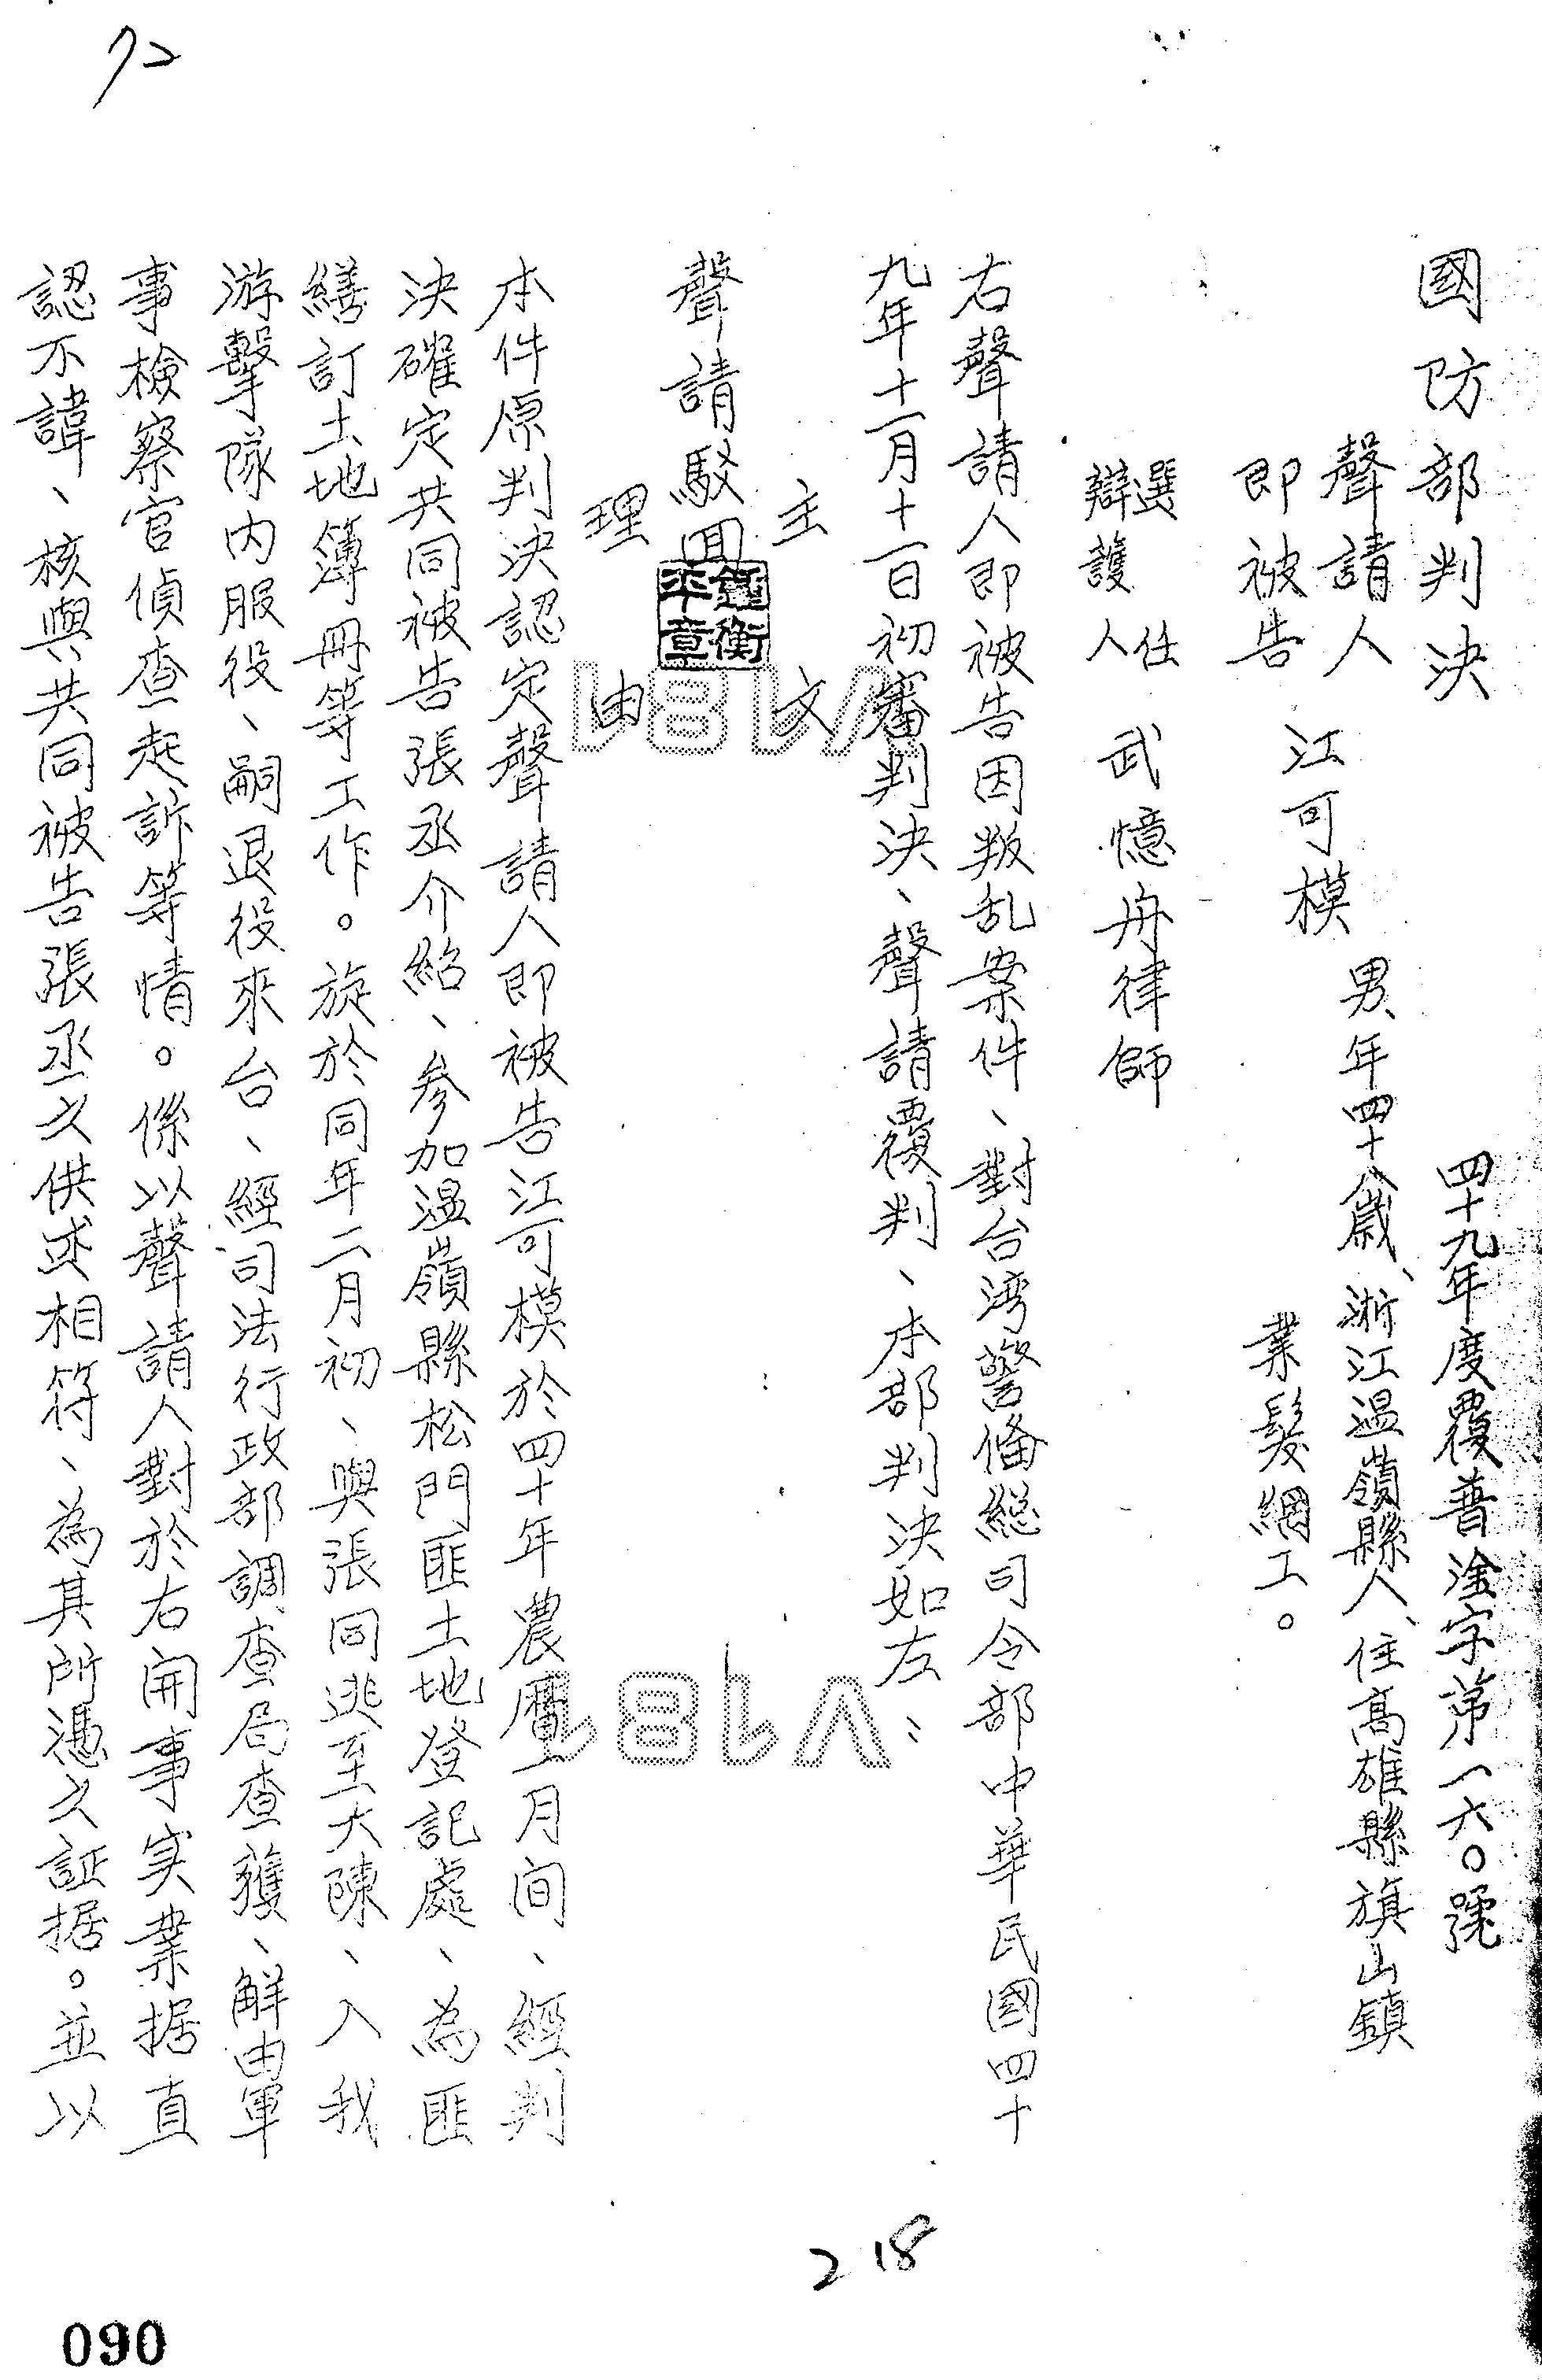 72
國防部判決
四十九年度覆普淦字第一六〇號
聲請人
即被告 江可模 男、年四十八歲、浙江温嶺縣人、住高雄縣旗山鎮
業髮網工。
選任
辯護人 武憶舟律師
右聲請人即被告因叛乱案件、對台湾警俻総司令部中華民國四十
九年十一月十一日初審判決、聲請覆判、本部判決如左：
主 文
聲請駁回
鍾衡平章
理 由
本件原判決認定聲請人即被告江可模於四十年農曆一月间、經判
決確定共同被告張丞介紹、参加温嶺縣松門匪土地登記處、為匪
繕訂土地簿冊等工作。旋於同年二月初、與張同逃至大陳、入我
游擊隊内服役、嗣退役來台、經司法行政部調查局查獲、解由軍
事檢察官偵查起訴等情。係以聲請人對於右開事实業据直
認不諱、核與共同被告張丞之供述相符、為其所憑之証据。並以
218
090
V181
V181